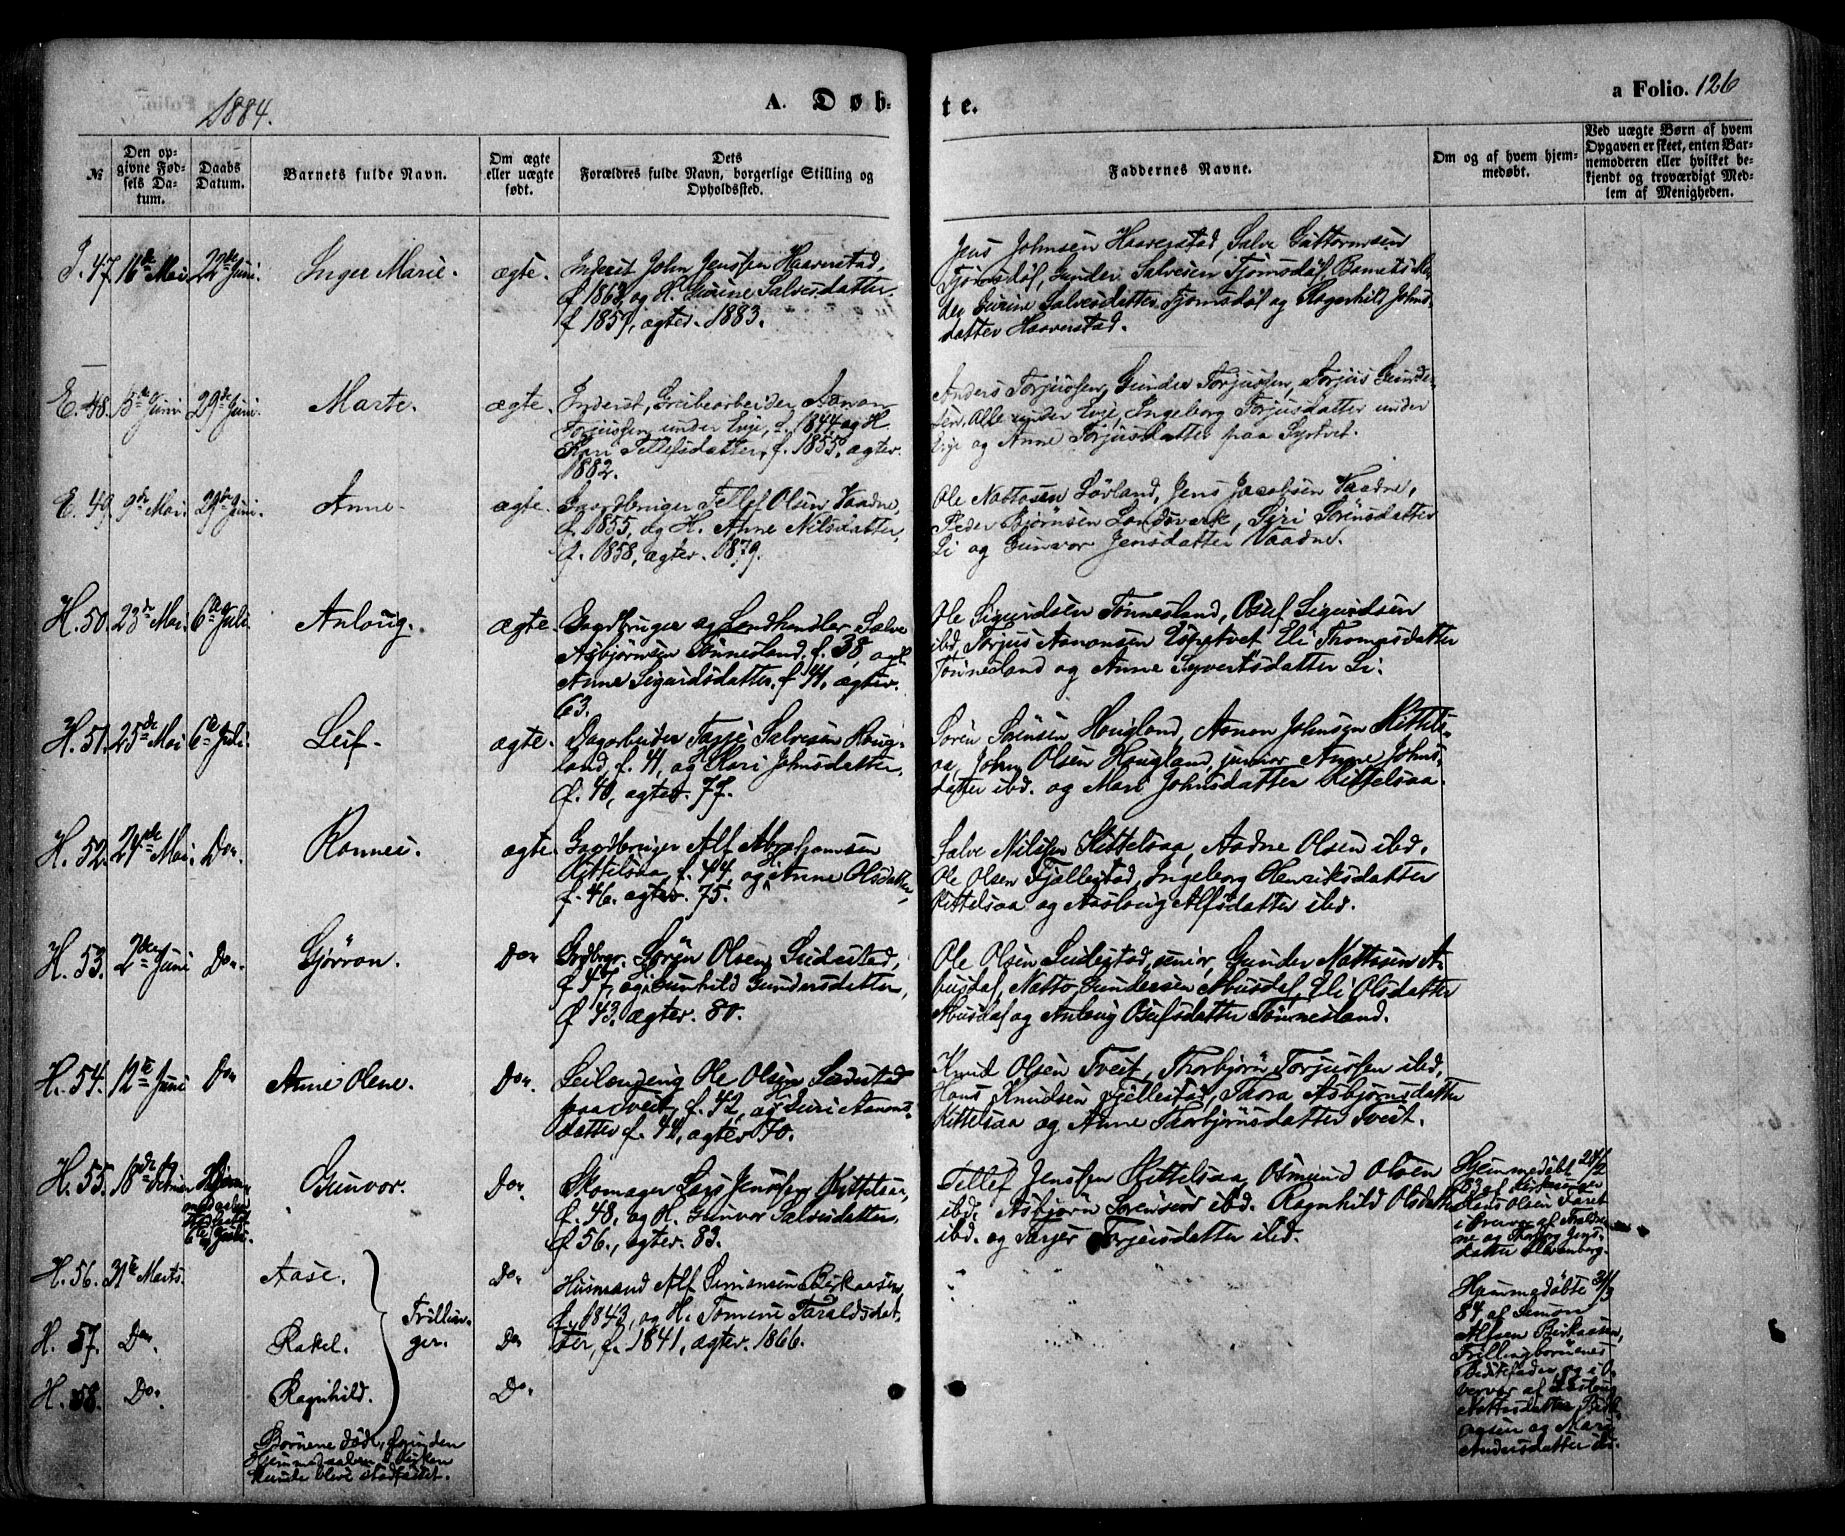 1884.
A. Døb-
te.
a Folio. 126
№
Den op-
givne Fød-
sels Da-
tum.
Daabs
Datum.
Barnets fulde Navn.
Om ægte
eller uægte
født.
Dets
Forældres fulde Navn, borgerlige Stilling og
Opholdssted.
Faddernes Navne.
Om og af hvem hjem-
medøbt.
Ved uægte Børn af hvem
Opgaven er skeet, enten Bar-
nemoderen eller hvilket be-
kjendt og troværdigt Med-
lem af Menigheden.
I. 47. 16de Mai 22de Juni. Inger Marie. ægte.
Inderst John Jenssen Haaverstad,
f 1863, og H. Gurine Salvesdatter
f. 1859, ægtev. 1883.
Jens Johnsen Haaverstad, Salve Guttormsen
Tjomsdøl, Gunder Salvesen Tjomsdøl, Barnets Mo-
der Gurine Salvesdatter Tjomsdøl og Ragnhild Johns-
datter Haaverstad.
E. 48. 5de Juni 29de Juni. Marte. ægte.
Inderst, Grubearbeider Aanon
Torjussen under Evje, f. 1844 og H.
Kari Tellefsdatter, f. 1855, ægtev.
1882.
Anders Torjussen, Gunder Torjussen, Torjus Gunder-
sen, Alle under Evje, Ingeborg Torjusdatter under
Evje og Anne Torjusdatter paa Syrtvet.
E. 49. 9de Mai. 29de Juni. Anne. ægte.
Gaardbruger Tellef Olsen Vaadne,
f. 1855, og H. Anne Nilsdatter,
f. 1858, ægtev. 1879.
Ole Nattosen Lövland, Jens Jacobsen Vaadne,
Peder Bjørnsen Landsverk, Siri Sørensdatter
Li og Gunvor Jensdatter Vaadne.
H. 50. 23de Mai. 6te Juli Anlaug. ægte.
Gaardbruger og Landhandler Salve
Asbjørnsen Tönnesland, f. 38, og H.
Anne Sigurdsdatter, f. 41, ægtev.
63.
Ole Sigurdsen Tönnesland, Osuf Sigurdsen
ibd, Torjus Aanonsen Uppstvet, Eli Thomasdatter
Tönnesland og Anne Syvertsdatter Li.
H. 51. 25de Mai 6te Juli. Leif. ægte.
Dagarbeider Tarje Salvesen Houg-
land, f. 41, og H. Kari Johnsdatter,
f. 40, ægtev. 77.
Sören Sörensen Hougland, Aanon Johnsen Kittels-
aa, John Olsen Hougland, junior Anne Johns-
datter ibd. og Mari Johnsdatter Kittelsaa.
H. 52. 24de Mai. Do. Rannei. ægte.
Gaardbruger Alf Abrahamsen
Kittelsaa, f. 44, og H. Anne Olsdatter,
f. 46. ægtev. 75.
Salve Nilsen Kittelsaa, Aadne Olsen ibd,
Ole Olsen Fjellestad, Ingeborg Henriksdatter
Kittelsaa og Aaslaug Alfsdatter ibd.
H. 53. 2den Juni Do. Gjörron. Do.
Grdbrgr. Sören Olsen Senderstad,
f 47, og H. Gunhild Gundersdatter,
f 43. ægtev. 80.
Ole Olsen Senderstad, senior, Gunder Nattosen A-
busdal, Natto Gundersen Abusdal, Eli Olsdatter
Abusdal og Anlaug Osufsdatter Tönnesland.
H. 54. 12te Juni Do. Anne Olene. Do.
Leilænding Ole Olsen Senderstad
paa Tveit, f. 42, og H. Guri Aanons-
datter f. 44, ægtev. 70.
Knud Olsen Tveit, Thorbjörn Torjussen ibd,
Hans Knudsen Fjellestad, Thora Asbjørnsdatter
Kittelsaa og Anne Thorbjörnsdatter Tveit.
H. 55. 18de Gunvor. Do.
Skomager Lars Jenssen Kittelsaa,
f. 48, og H. Gunvor Salvesdatter,
f 56., ægtev. 83.
Tellef Jenssen Kittelsaa, Osmund Olsen
ibd. Asbjörn Sörensen ibd. Ragnhild Olsdatter
ibd. og Tarjer Torjusdatter ibd.
Hjemmedøbt
Hans Olsen
datter
H. 56. 31te Marts. Aase. Do.
H. 57. Do. Rakel. Do
H. 58. Do. Ragnhild. Do.
Trillin-
ger.
Husmand Alf Simonsen Birkaasen,
f. 1843, og H. Tomine Taraldsdat-
ter, f. 1841, ægtev. 1866.
Børnene døde, forinden
Hjemmedaaben i Kirken
kunde blive stadfæstet.
Hjemmedøbte 31/3
84 af Simon
Alfsen Birkaasen,
Trillingbørnenes
Bedstefader, og i O-
vervær af Aaslaug
Nattosdatter Birk-
aasen og Mari
Andersdatter ibd.